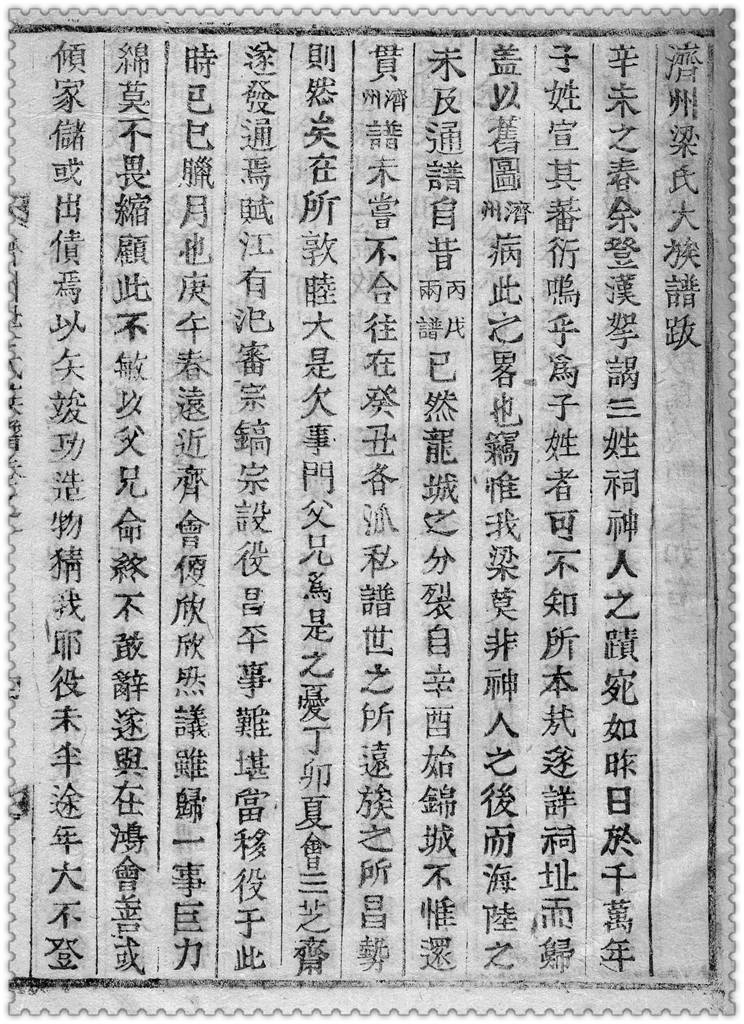 濟州梁氏大族譜跋
辛未之春余登漢拏謁三姓祠神人之蹟宛如昨日於千萬年
子姓宣其蕃衍嗚乎爲子姓者可不知所本哉遂詳祠址而歸
盖以舊圖濟州病此之畧也竊惟我梁莫非神人之後而海陸之
未及通譜自昔丙戊兩譜已然龍城之分裂自辛酉始錦城不惟還
貫濟州譜未嘗不合往在癸丑各派私譜世之所遠族之所昌勢
則然矣在所敦睦大是欠事門父兄爲是之憂丁卯夏會三芝齋
遂發通焉賦江有汜審宗鎬宗設役昌平事難堪當移役于此
時已巳臘月也庚午春遠近齊會僾欣欣然議雖歸一事巨力
綿莫不畏縮顧此不敏以父兄命終不敢辭遂與在鴻會善或
傾家儲或出債焉以矢竣功造物猜我耶役未半途年大不登